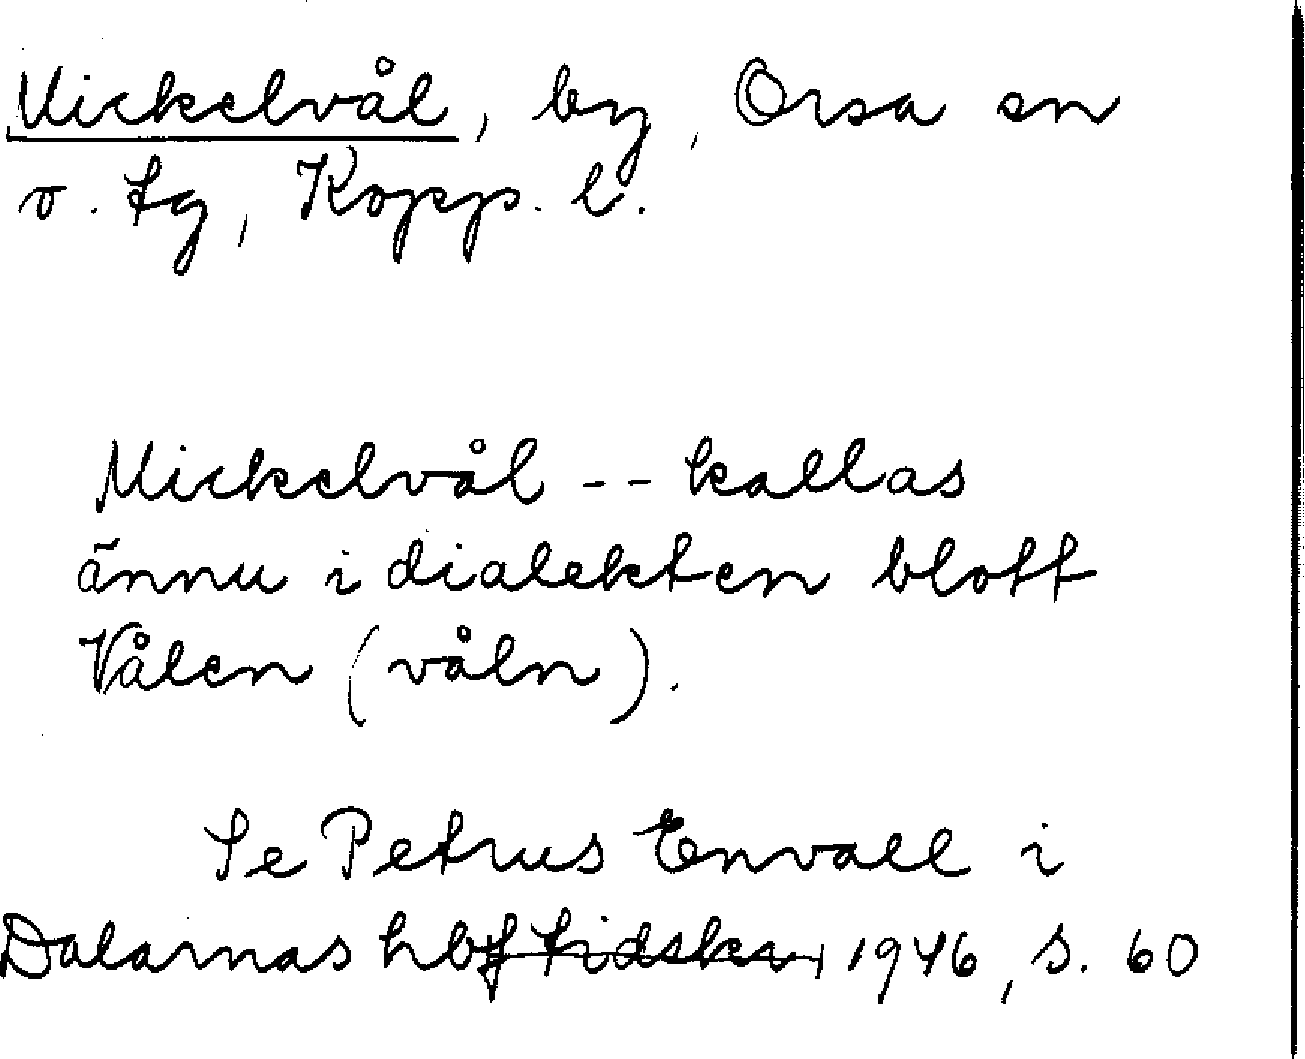 Mickelvål, by, Orsa sn
o. tg, Kopp. l.
Mickelvål -- kallas
ännu i dialekten blott
Vålen (våln).
Se Petrus Envall i
Dalarnas hbf tidskr, 1946, s. 60